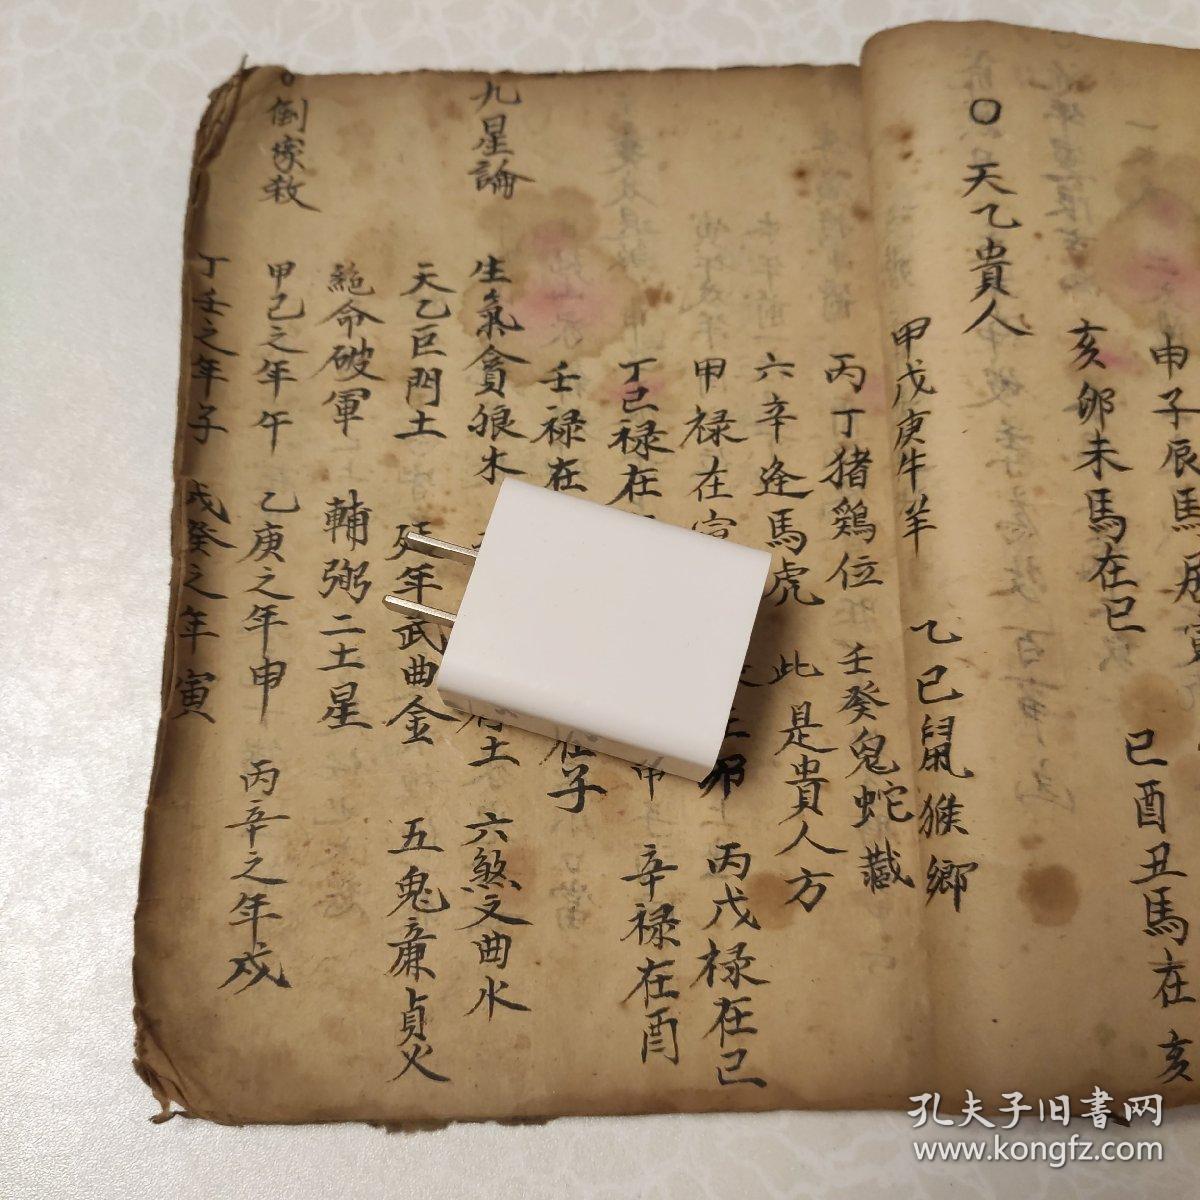 申子辰馬居寅
巳酉丑馬在亥
亥卯未馬在巳
〇天乙貴人
甲戊庚牛羊 乙己鼠猴鄉
丙丁猪鷄位 壬癸兔蛇藏
六辛逢馬虎 此是貴人方
甲禄在寅 卯 丙戊禄在巳
丁己禄在 辛禄在酉
壬禄在 在子
九星論
生氣貪狼木 土 六煞文曲水
天乙巨門土 延年武曲金 五鬼亷貞火
絶命破軍 輔弼二土星
〇倒家殺
甲己之年午 乙庚之年申 丙辛之年戍
丁壬之年子 戍癸之年寅
孔夫子旧書网
www.kongfz.com